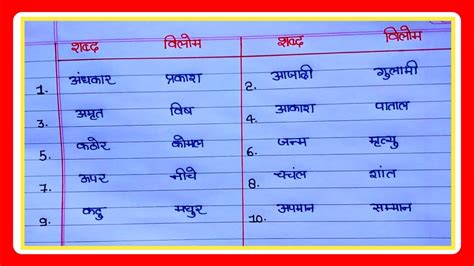 शब्द विलोम शब्द विलोम
1. अंधकार प्रकाश 2. आजादी गुलामी
3. अमृत विष 4. आकाश पाताल
5. कठोर कोमल 6. जन्म मृत्यु
7. ऊपर नीचे 8. चचंल शांत
9. कटु मधुर 10. अपमान सम्मान